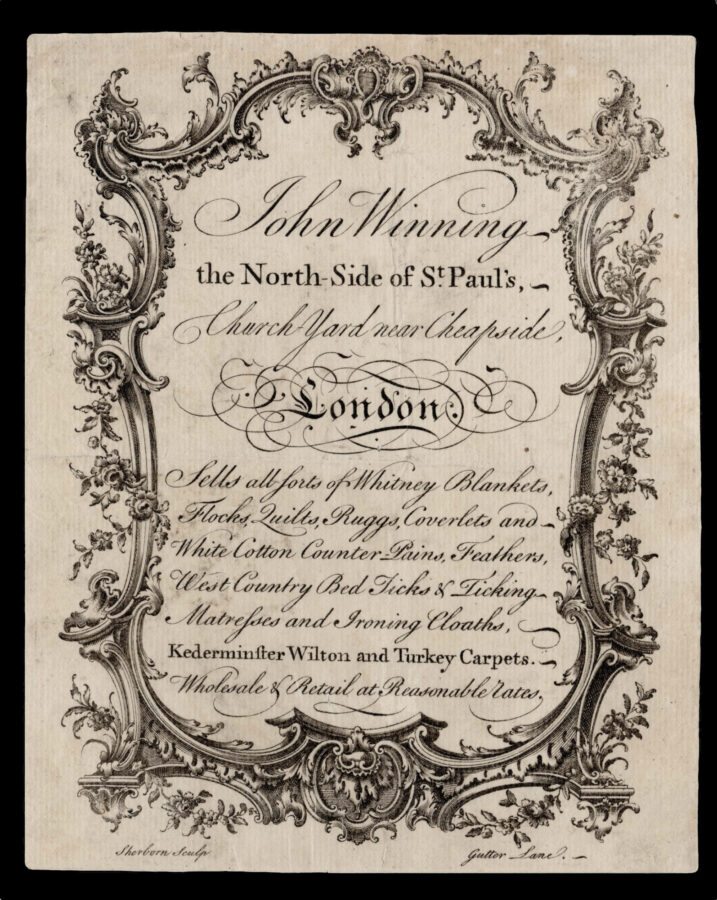 John Winning
the North-Side of St. Paul's,
Church-Yard near Cheapside,
London.
Sells all ſorts of Whitney Blankets,
Flocks, Quilts, Ruggs, Coverlets and
White Cotton Counter-Pains, Feathers,
West Country Bed Ticks & Ticking
Matreſses and Ironing Cloaths,
Kederminſter Wilton and Turkey Carpets.
Wholesale & Retail at Reasonable rates.
Sherborn Sculp
Gutter Lane.